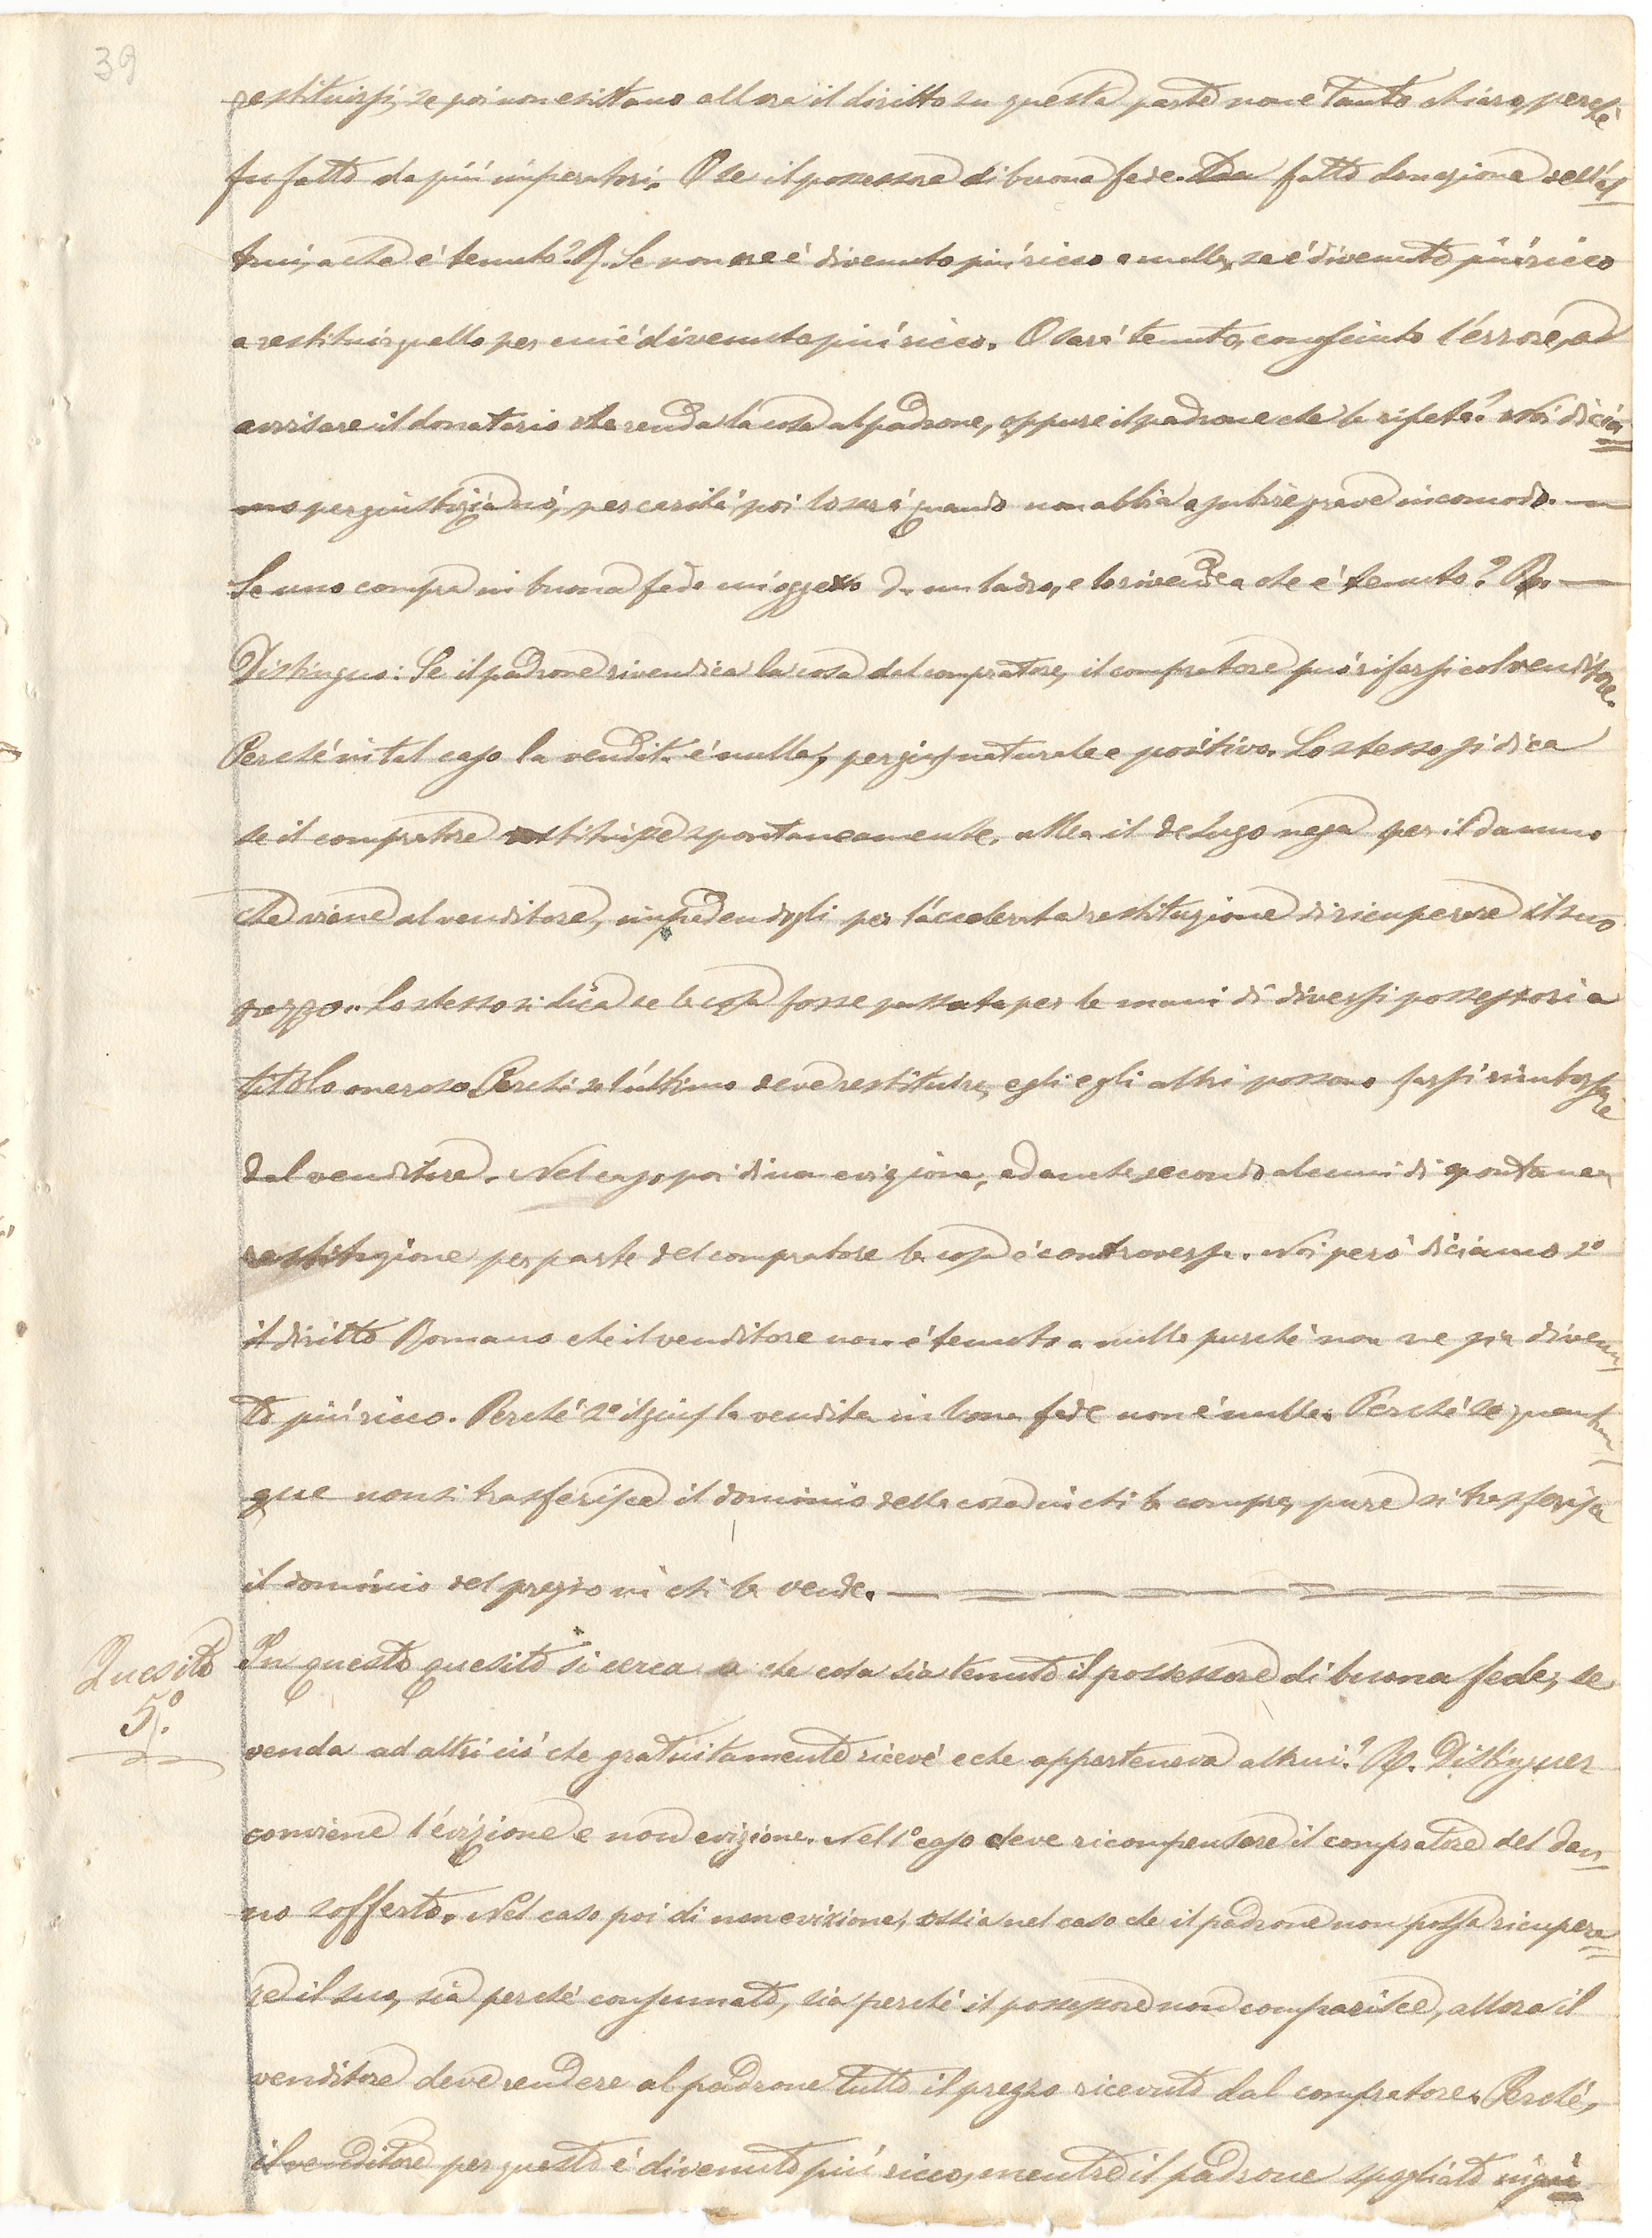 39
restituirsi, se poi non esistano allora il diritto su questa parte non è tanto chiaro, perchè
fu fatto da più imperatori. O se il possessore di buona fede ha fatto donazione dell'al
trui, a che è tenuto? R. Se non ne è divenuto più ricco a nulla, se è divenuto più ricco
a restituir quello per cui è divenuto più ricco. O sarà tenuto, conosciuto l'errore, ad
avvisare il donatario che renda la cosa al padrone, oppure il padrone che la ripeta? Noi dicia
mo per giustizia nò, per carità poi lo sarà quando non abbia a subire grave incomodo. —
Se uno compra in buona fede un'oggetto da un ladro, e lo rivende a che è tenuto? R. —
Distinguo: Se il padrone rivendica la cosa dal compratore, il compratore può rifarsi col venditore.
Perchè in tal caso la vendita è nulla, per gius naturale e positivo. Lo stesso si dica
se il compratore restituisce spontaneamente, allora il de Lugo nega per il danno
che viene al venditore, impedendogli per l'accelerata restituzione di ricuperare il suo
prezzo. Lo stesso si dica se la cosa fosse passata per le mani di diversi possessori a
titolo oneroso. Perchè se l'ultimo deve restituire, egli e gli altri possono farsi rimborsare
dal venditore. Nel caso poi di non evizione, ed anche secondo alcuni di spontanea
restituzione per parte del compratore la cosa è controversa. Noi però diciamo 2º
il diritto Romano che il venditore non è tenuto a nulla purchè non ne sia divenu
to più ricco. Perchè 2º il gius la vendita in bona fede non è nulla. Perchè se quantun
que non si trasferisce il dominio della cosa in chi la compra, pure si trasferisce
il dominio del prezzo in chi la vende. —
Quesito
5º.
In questo quesito si cerca a che cosa sia tenuto il possessore di buona fede, se
venda ad altri ciò che gratuitamente ricevè e che apparteneva altrui? R. Distinguer
conviene l'evizione e non evizione. Nel 1º caso deve ricompensare il compratore del dan
no sofferto. Nel caso poi di non evizione, ossia nel caso che il padrone non possa ricupera
re il suo, sia perchè consumato, sia perchè il possessore non comparisce, allora il
venditore deve rendere al padrone tutto il prezzo ricevuto dal compratore. Perchè,
il venditore per questo è divenuto più ricco, mentre il padrone spogliato ingiu